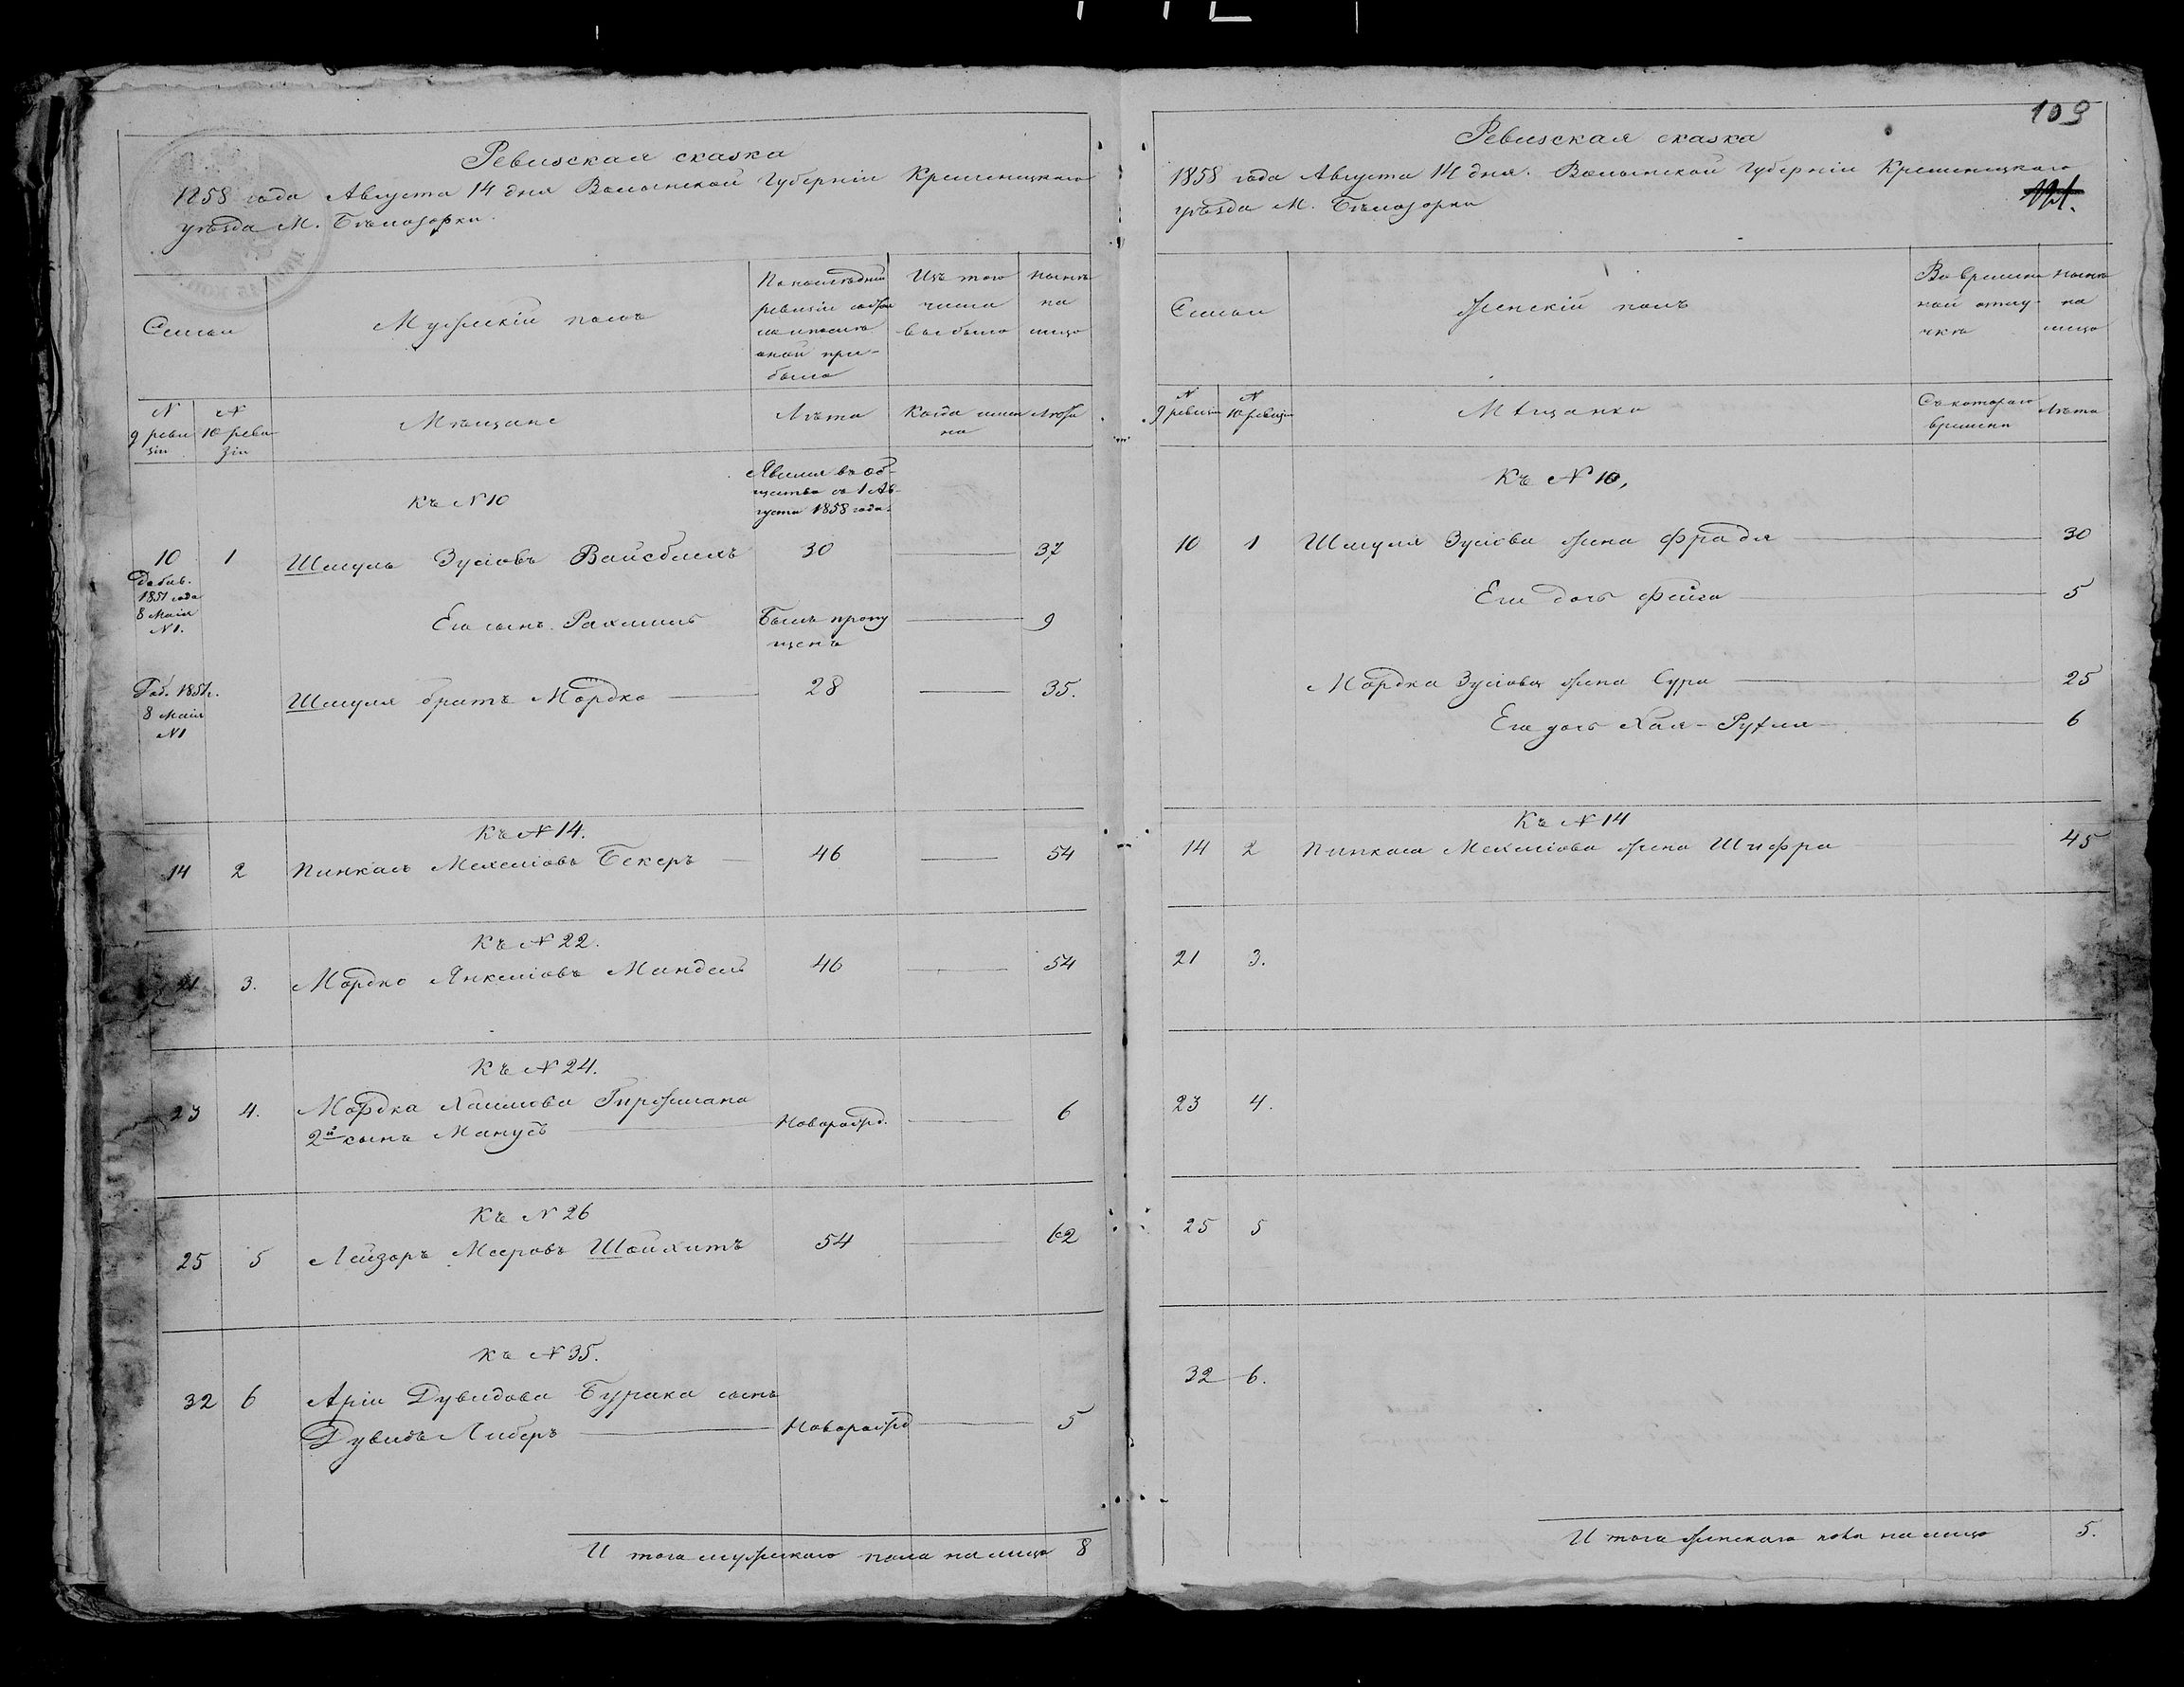 Ревизская сказка
1858 года Августа 14 дня Волынской Губерніи Кременецкаго
уѣзда М. Бѣлозорки.
Семьи
Мужескій полъ
По послѣдней
ревизіи состоя
ло и послѣ
оной при-
было
Изъ того
числа
выбыло
Нынѣ
на
лицо
N
9 реви
зіи
N
10 реви
зіи
Мѣщане
Лѣта
Когда имян
но
Лѣта
Къ N 10
Явился въ об-
щество съ 1 Ав-
густа 1858 года.
10 1 Шмуль Зусіовъ Вайсблихъ 30 37
Добав.
1851 года
8 Маія
N 1.
Его сынъ Рахмиль Былъ пропу 9
щенъ
Доб. 1851 г.
8 Маія
N 1
Шмуля братъ Мордко 28 35.
Къ N 14.
14 2 Пинкасъ Мехеліовъ Бекеръ 46 54
Къ N 22.
21 3. Мордко Янкеліовъ Мандель 46 54
Къ N 24.
23 4. Мордка Хаимова Гиржмана
2й сынъ Манусъ Новорожд. 6
Къ N 26
25 5 Лейзоръ Мееровъ Шойхитъ 54 62
Къ N 35.
32 6 Арія Дувидова Бурака сынъ
Дувидъ Либеръ Новорожд 5
И того мужескаго пола на лицо 8
103
Ревизская сказка
1858 года Августа 14 дня. Волынской Губерніи Кременецкаго
уѣзда М. Бѣлозорки
Семьи
Женскій полъ
Во времен
ной отлу-
чкѣ
Нынѣ
на
лицо
N
9 ревизіи
N
10 ревизіи
Мѣщанки
Съ котораго
времени
Лѣта
Къ N 10,
10 1 Шмуля Зусіова жена Фрадя 30
Его дочь Фейга 5
Мордка Зусіова жена Сура 25
Его дочь Хая-Рухля 6
Къ N 14
14 2 Пинкаса Мехеліова жена Шифра 45
21 3.
23 4.
25 5
32 6.
И того женскаго пола на лицо 5.